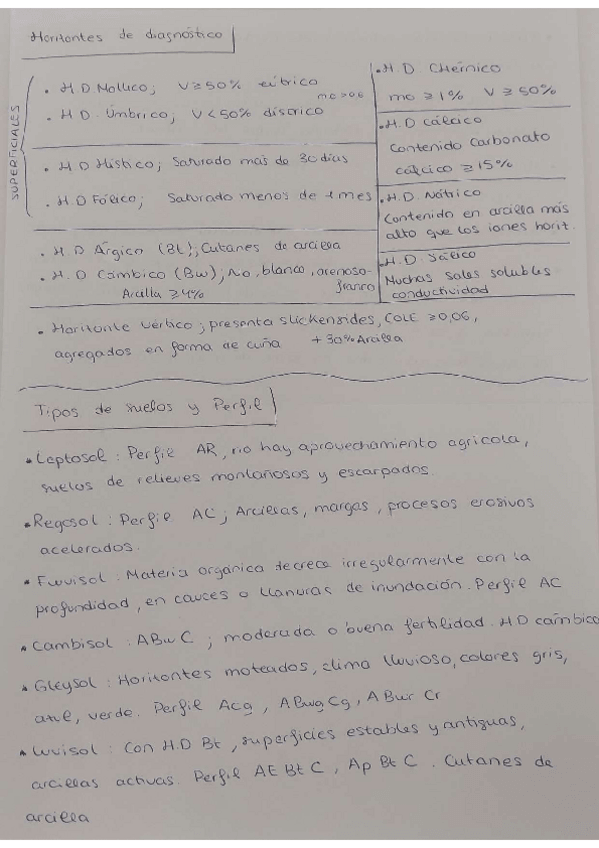 Horizontes de diagnóstico
SUPERFICIALES
• H D. Mollico; V ≥ 50% eútrico
mo > 0.6
• H D. Úmbrico; V < 50% dístrico
• H D Hístico; Saturado más de 30 días
• H D Fólico; Saturado menos de 1 mes
• H D Árgico (Bt); Cutanes de arcilla
• H. D Cámbico (Bw); No, blanco, arenoso-
franco
Arcilla ≥ 4%
• H. D Chérnico
mo ≥ 1% V ≥ 50%
• H. D Cálcico
Contenido Carbonato
cálcico ≥ 15%
• H. D. Nátrico
Contenido en arcilla más
alto que los iones horit.
• H. D. Sálico
Muchas sales solubles
conductividad
• Horizonte vértico; presenta slickensides, COLE ≥ 0,06,
agregados en forma de cuña + 30% Arcilla
Tipos de suelos y Perfil
• Leptosol: Perfil AR, no hay aprovechamiento agrícola,
suelos de relieves montañosos y escarpados.
• Regosol: Perfil AC; Arcillas, margas, procesos erosivos
acelerados.
• Fluvisol: Materia orgánica decrece irregularmente con la
profundidad, en cauces o llanuras de inundación. Perfil AC
• Cambisol: ABw C; moderada o buena fertilidad. H D cámbico
• Gleysol: Horizontes moteados, clima lluvioso, colores gris,
azul, verde. Perfil Acg, ABwg Cg, ABwr Cr
• Luvisol: Con H.D Bt, superficies estables y antiguas,
arcillas activas. Perfil AE Bt C, Ap Bt C. Cutanes de
arcilla